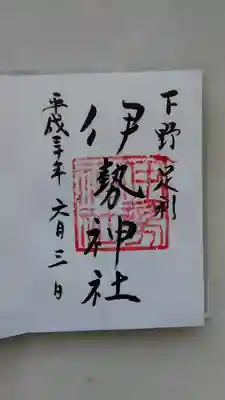 下野 足利
伊勢神社
平成三十年 六月三日